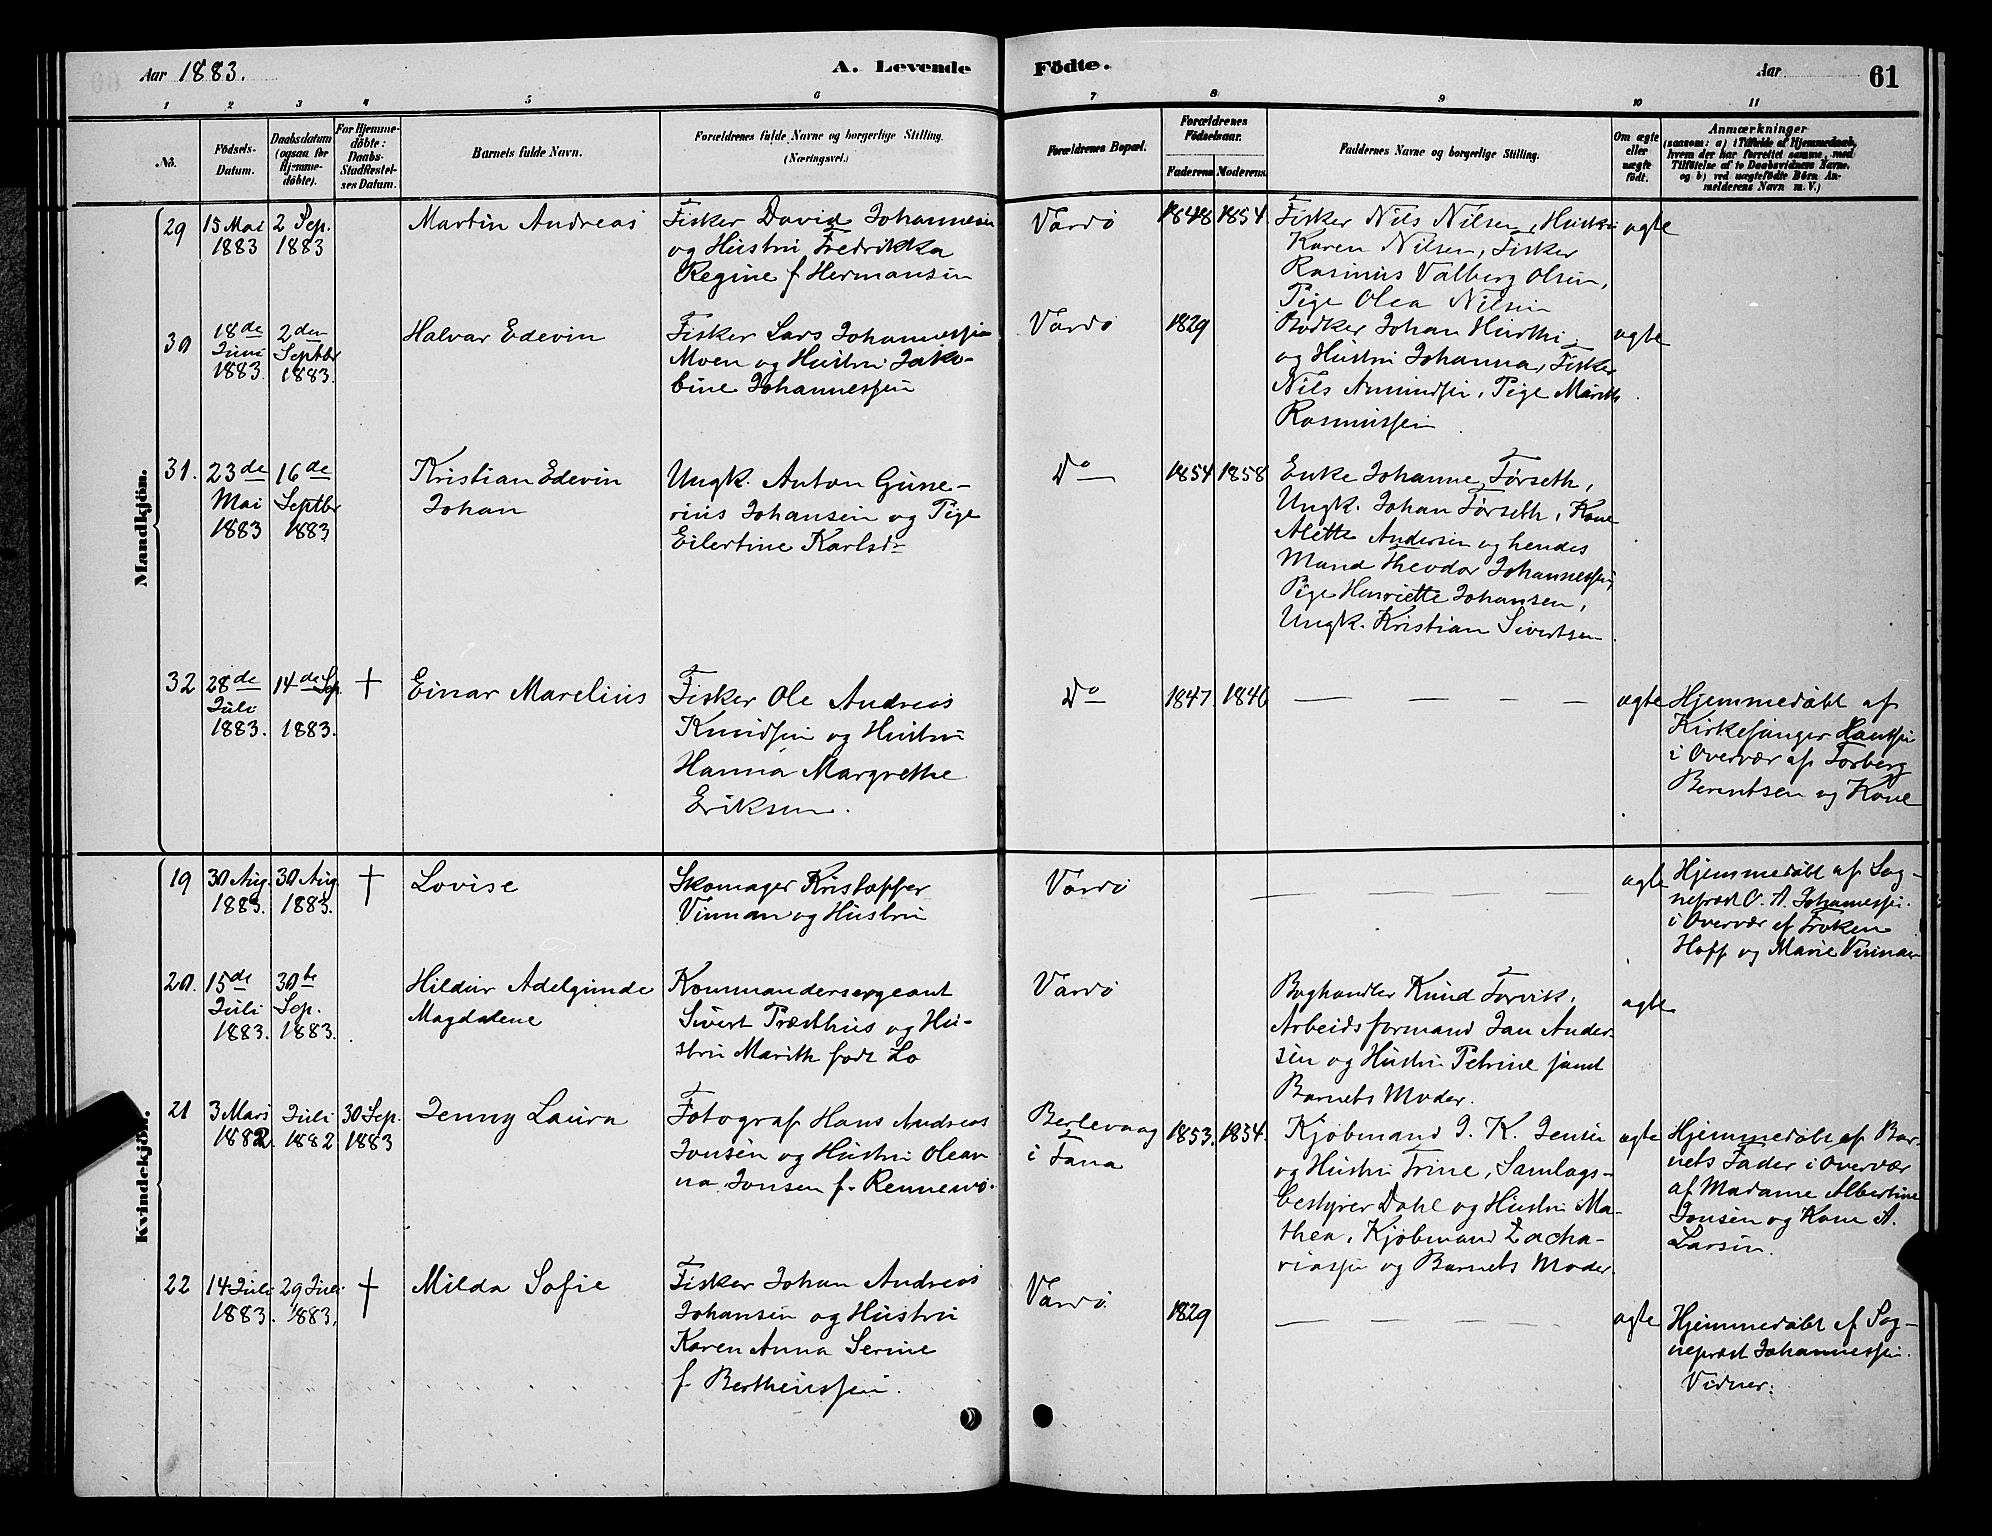 Aar 1883.
A. Levende
Födte.
Aar
61
1 2 3 4 5 6 7 8 9 10 11
No.
Födsels-
Datum.
Daabsdatum
(ogsaa for
Hjemme-
döbte).
For Hjemme-
döbte:
Daabs-
Stadfæstel-
ses Datum.
Barnets fulde Navn.
Forældrenes fulde Navne og borgerlige Stilling.
(Næringsvei.)
Forældrenes Bopæl.
Forældrenes
Födselsaar.
Faderens
Moderens.
Faddernes Navne og borgerlige Stilling.
Om ægte
eller
uægte
födt.
Anmærkninger
(saasom: a) i Tilfælde af Hjemmedaab,
hvem der har forrettet samme, med
Tilföielse af to Daabsvidners Navne.
og b) ved uægtefödte Börn An-
melderens Navn m. V.)
Mandkjön.
29
15 Mai
1883
2 Sep.
1883
Martin Andreas
Fisker David Johannesen
og Hustru Fredrikka
Regine f Hermansen
Vardø
1848
1854
Fisker Nils Nilsen, Hustru
Karen Nilsen, Fisker
Rasmus Valberg Olsen,
Pige Olea Nilsen
ægte
30
18de
Juni
1883.
2den
Septbr
1883.
Halvar Edevin
Fisker Lars Johannessen
Moen og Hustru Jako-
bine Johannessen
Vardø
1829
Bødker Johan
og Hustru Johanna, Fisker
Nils Amundsen, Pige Marith
Rasmussen
ægte
31.
23de
Mai
1883
16de
Septbr
1883
Kristian Edevin
Johan
Ungk. Anton Gune-
rius Johansen og Pige
Eilertine Karlsd
Do
1854
1858
Enke Johanne Førseth,
Ungk. Johan Førseth, Kone
Alette Andersen og hendes
Mand Theodor Johannessen,
Pige Henriette Johansen,
Ungk. Kristian Sivertsen
32
28de
Juli
1883.
14de Sep.
1883.
†
Einar Marelius
Fisker Ole Andreas
Knudsen og Hustru
Hanna Margrethe
Eriksen.
Do
1847
1846
— — — — —
ægte
Hjemmedøbt af
Kirkesanger
i Overvær af Torberg
Berentsen og Kone
Kvindekjön.
19
30 Aug.
1883.
30 Aug.
1883.
†
Lovise
Skomager Kristoffer
Vinnan og Hustru
Vardø
— — — — —
ægte
Hjemmedøbt af Sog-
neprest O. A. Johannessen.
i Overvær af Frøken
Hoff og Marie Vinnan
20.
15de
Juli
1883.
30te
Sep.
1883.
Hildur Adelgunde
Magdalene
Kommandersergeant
Sivert Præsthus og Hu-
stru Marith født Lo
Vardø
Boghandler Knud Torvik,
Arbeidsformand Jan Ander-
sen og Hustru Petrine samt
Barnets Moder.
ægte
21
3 Mars
1882
Juli
1882
30 Sep.
1883
Jenny Laura
Fotograf Hans Andreas
Jonsen og Hustru Olean-
na Jonsen f. Rennevø.
Berlevaag
i Tana
1853.
1854.
Kjøbmand J. K. Jensen
og Hustru Trine, Samlags-
bestyrer Dahl og Hustru Ma-
thea, Kjøbmand Zacha-
riassen og Barnets Moder.
ægte
Hjemmedøbt af Bar-
nets Fader i Overvær
af Madame Albertine
Jonsen og Kone A.
Larsen.
22
14 Juli
1883.
29 Juli
1883,
†
Milda Sofie
Fisker Johan Andreas
Johansen og Hustru
Karen Anna Serine
f Berthinssen.
Vardø
1829
— — — — —
ægte
Hjemmedøbt af Sog-
neprest Johannessen.
Vidner: